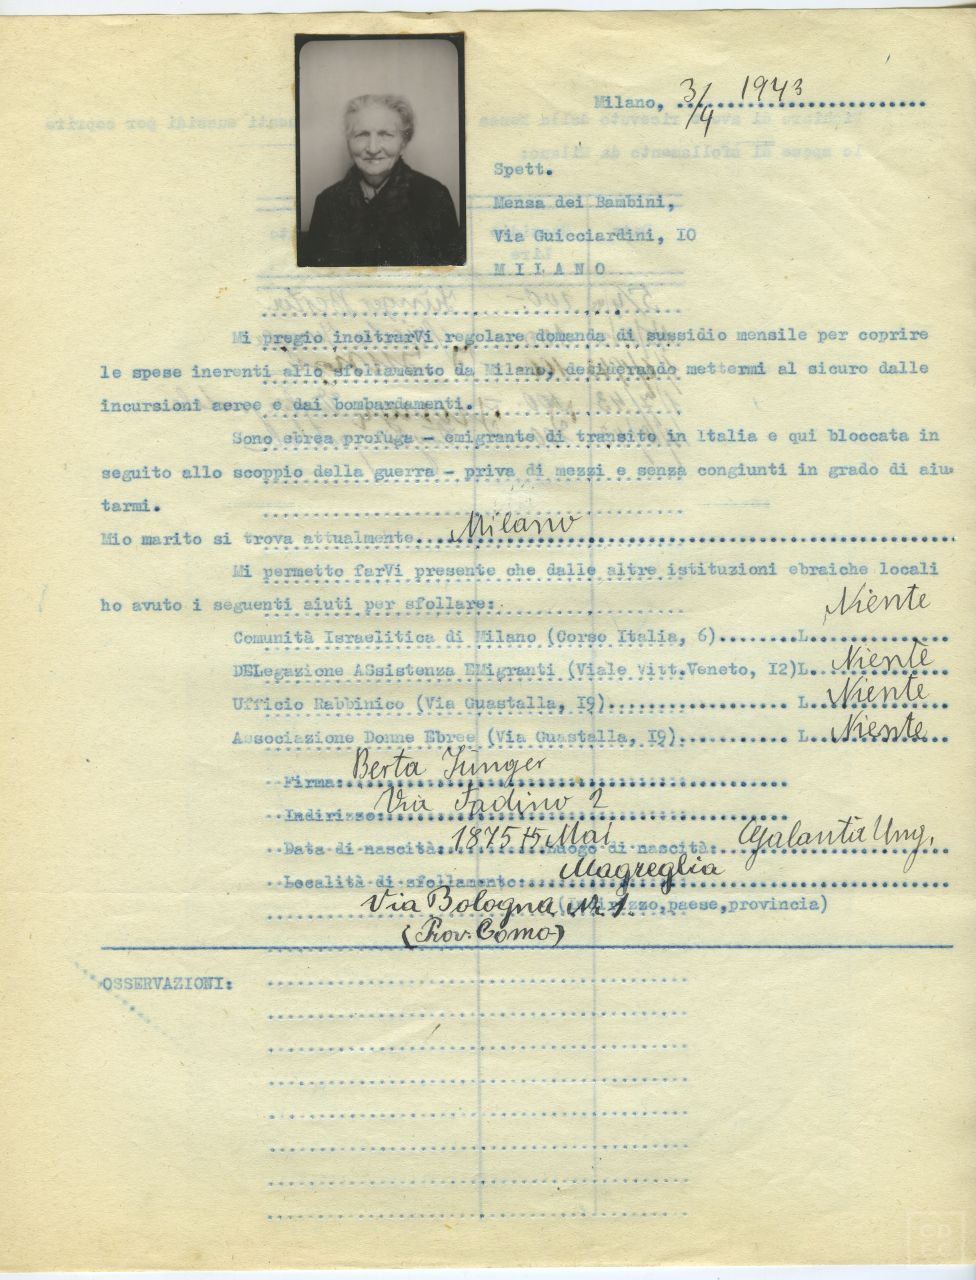 Milano, 3/4 1943
Spett.
Mensa dei Bambini,
Via Guicciardini, 10
MILANO
Mi pregio inoltrarVi regolare domanda di sussidio mensile per coprire
le spese inerenti allo sfollamento da Milano, desiderando mettermi al sicuro dalle
incursioni aeree e dai bombardamenti.
Sono ebrea profuga - emigrante di transito in Italia e qui bloccata in
seguito allo scoppio della guerra - priva di mezzi e senza congiunti in grado di aiu-
tarmi.
Mio marito si trova attualmente....Milano
Mi permetto farVi presente che dalle altre istituzioni ebraiche locali
ho avuto i seguenti aiuti per sfollare:
Comunità Israelitica di Milano (Corso Italia, 6)........L. Niente
DELegazione ASsistenza EMigranti (Viale Vitt.Veneto, 12)L. Niente
Ufficio Rabbinico (Via Guastalla, 19).................. L. Niente
Associazione Donne Ebree (Via Guastalla, 19)........... L. Niente
Firma: Berta Jünger
Indirizzo: Via Fadino 2
Data di nascita: 1875 15 Mai luogo di nascita: Galanta Ung.
Località di sfollamento: Magreglia
Via Bologna Nr 1. (Indirizzo,paese,provincia)
(Prov. Como)
OSSERVAZIONI: